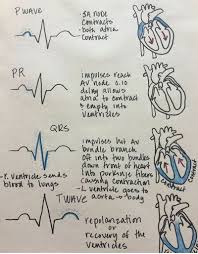 P WAVE
SA NODE
contracts
both atria
contract
PR
impulses reach
AV node 0.10
delay allows
atria to contract
& empty into
ventricles
QRS
impulses hit AV
bundle branch
off into two bundles
down front of heart
into purkinje fibers
causing contraction
- r. ventricle sends
blood to lungs
- L ventricle goes to
aorta → body
contract
contract
T WAVE
repolarization
or
recovery of the
ventricles